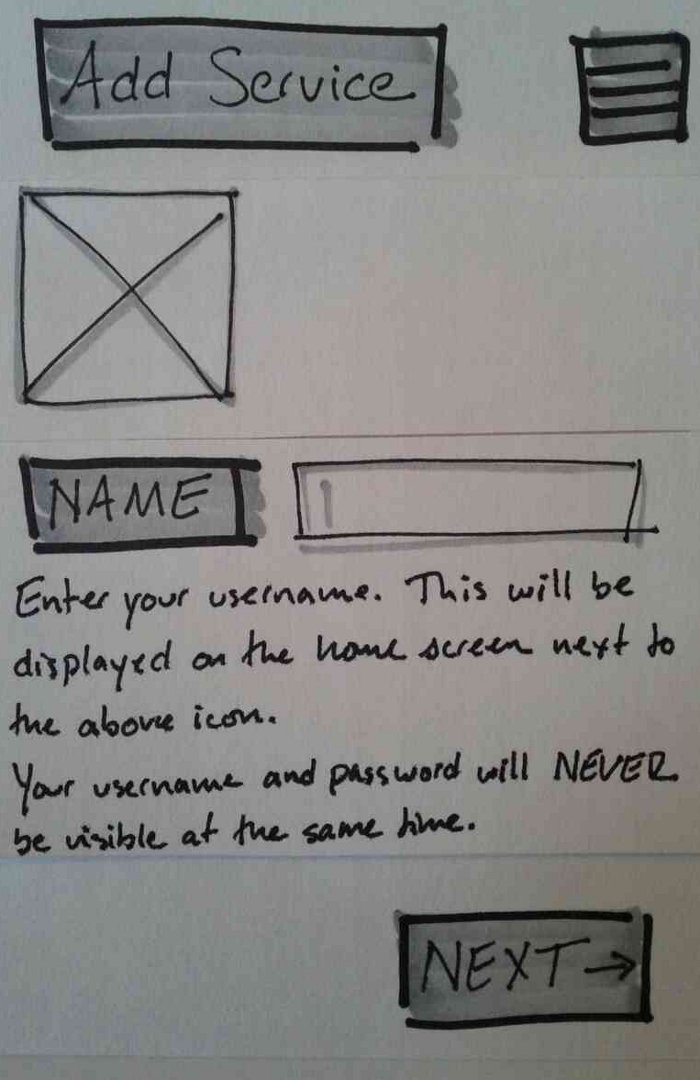 Add Service
NAME
Enter your username. This will be
displayed on the home screen next to
the above icon.
Your username and password will NEVER
be visible at the same time.
NEXT→